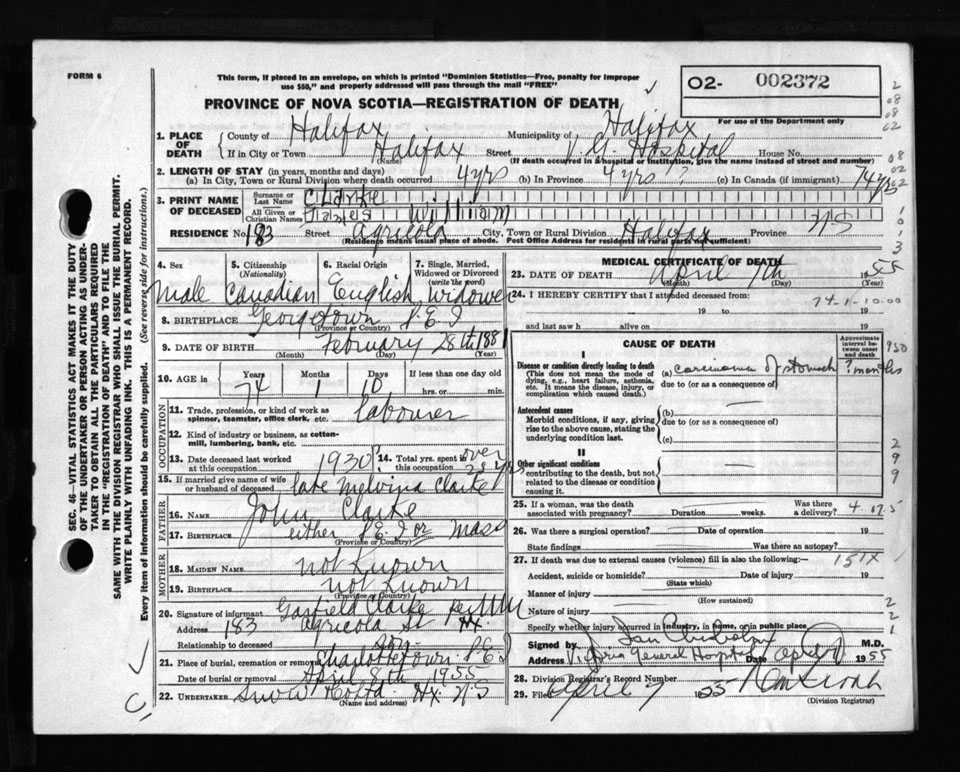 FORM 6
This form, if placed in an envelope, on which is printed "Dominion Statistics—Free, penalty for improper
use $50," and properly addressed will pass through the mail "FREE"
PROVINCE OF NOVA SCOTIA—REGISTRATION OF DEATH
O2- 002372
For use of the Department only
1. PLACE OF DEATH
County of Halifax Municipality of Halifax
If in City or Town Halifax Street V. G. Hospital House No.
(Name) (If death occurred in a hospital or institution, give the name instead of street and number)
2. LENGTH OF STAY (in years, months and days)
(a) In City, Town or Rural Division where death occurred 4 yrs (b) In Province 4 yrs ? (c) In Canada (if immigrant) 74 yrs
3. PRINT NAME OF DECEASED
Surname or Last Name Clarke
All Given or Christian Names James William
RESIDENCE No 183 Street Agricola City, Town or Rural Division Halifax Province N S
(Residence means usual place of abode. Post Office Address for residents in rural parts not sufficient)
4. Sex
Male
5. Citizenship (Nationality)
Canadian
6. Racial Origin
English
7. Single, Married, Widowed or Divorced (write the word)
Widower
8. BIRTHPLACE Georgetown P.E.I
(Province or Country)
9. DATE OF BIRTH February 28th 1881
(Month) (Day) (Year)
10. AGE in
Years 74 Months 1 Days 10 If less than one day old
hrs. or min.
OCCUPATION
11. Trade, profession, or kind of work as spinner, teamster, office clerk, etc. labourer
12. Kind of industry or business, as cotton-mill, lumbering, bank, etc.
13. Date deceased last worked at this occupation 1930
14. Total yrs. spent in this occupation over 25 yrs
15. If married give name of wife or husband of deceased late Melvina Clarke
FATHER
16. NAME John Clarke
17. BIRTHPLACE either P.E.I or Mass
(Province or Country)
MOTHER
18. MAIDEN NAME not Known
19. BIRTHPLACE not Known
(Province or Country)
20. Signature of informant Garfield Clarke per
Address 183 Agricola St Hx.
Relationship to deceased son
21. Place of burial, cremation or removal Charlottetown P.E.I
Date of burial or removal April 8th 1955
22. UNDERTAKER Snow Hx. N.S
(Name and address)
MEDICAL CERTIFICATE OF DEATH
23. DATE OF DEATH April 7th 1955
(Month) (Day) (Year)
24. I HEREBY CERTIFY that I attended deceased from:
74-1-10.00
19 to 19
and last saw h alive on 19
CAUSE OF DEATH
Approximate interval between onset and death
I
Disease or condition directly leading to death
(This does not mean the mode of dying, e.g., heart failure, asthenia, etc. It means the disease, injury, or complication which caused death.)
(a) carcinoma of stomach ? months
due to (or as a consequence of)
Antecedent causes
Morbid conditions, if any, giving rise to the above cause, stating the underlying condition last.
(b)
due to (or as a consequence of)
(c)
II
Other significant conditions
contributing to the death, but not related to the disease or condition causing it.
25. If a woman, was the death associated with pregnancy? Duration weeks. Was there a delivery?
26. Was there a surgical operation? Date of operation 19
State findings Was there an autopsy?
27. If death was due to external causes (violence) fill in also the following:
151X
Accident, suicide or homicide? Date of injury 19
(State which)
Manner of injury
(How sustained)
Nature of injury
Specify whether injury occurred in industry, in home, or in public place.
Signed by Ian Chisholm M.D.
Address Victoria General Hospital Date April 7 1955
28. Division Registrar's Record Number
29. Filed April 7 1955
(Division Registrar)
SEC. 46—VITAL STATISTICS ACT MAKES IT THE DUTY
OF THE UNDERTAKER OR PERSON ACTING AS UNDER-
TAKER TO OBTAIN ALL THE PARTICULARS REQUIRED
IN THE "REGISTRATION OF DEATH" AND TO FILE THE
SAME WITH THE DIVISION REGISTRAR WHO SHALL ISSUE THE BURIAL PERMIT.
WRITE PLAINLY WITH UNFADING INK. THIS IS A PERMANENT RECORD.
Every item of information should be carefully supplied. (See reverse side for instructions.)